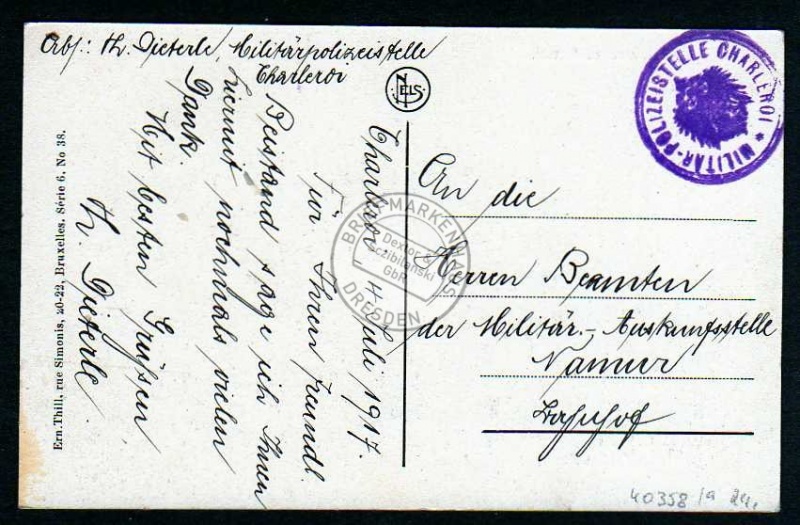 Abs.: Th. Dieterle, Militärpolizeistelle
Charleroi
NELS
MILITÄR-POLIZEISTELLE CHARLEROI *
Charleroi, 4. Juli 1917.
Für Ihren freundl.
Beistand sage ich Ihnen
hiermit nochmals vielen
Dank.
Mit besten Grüßen
Th. Dieterle
An die
Herren Beamten
der Militär.-Auskunftsstelle
Namur
Bahnhof
Ern. Thill, rue Simonis, 20-22, Bruxelles. Série 6, No 38.
BRIEFMARKENHAUS
Dexlor &
Sczibilanski
GbR
DRESDEN
40358/a 24,